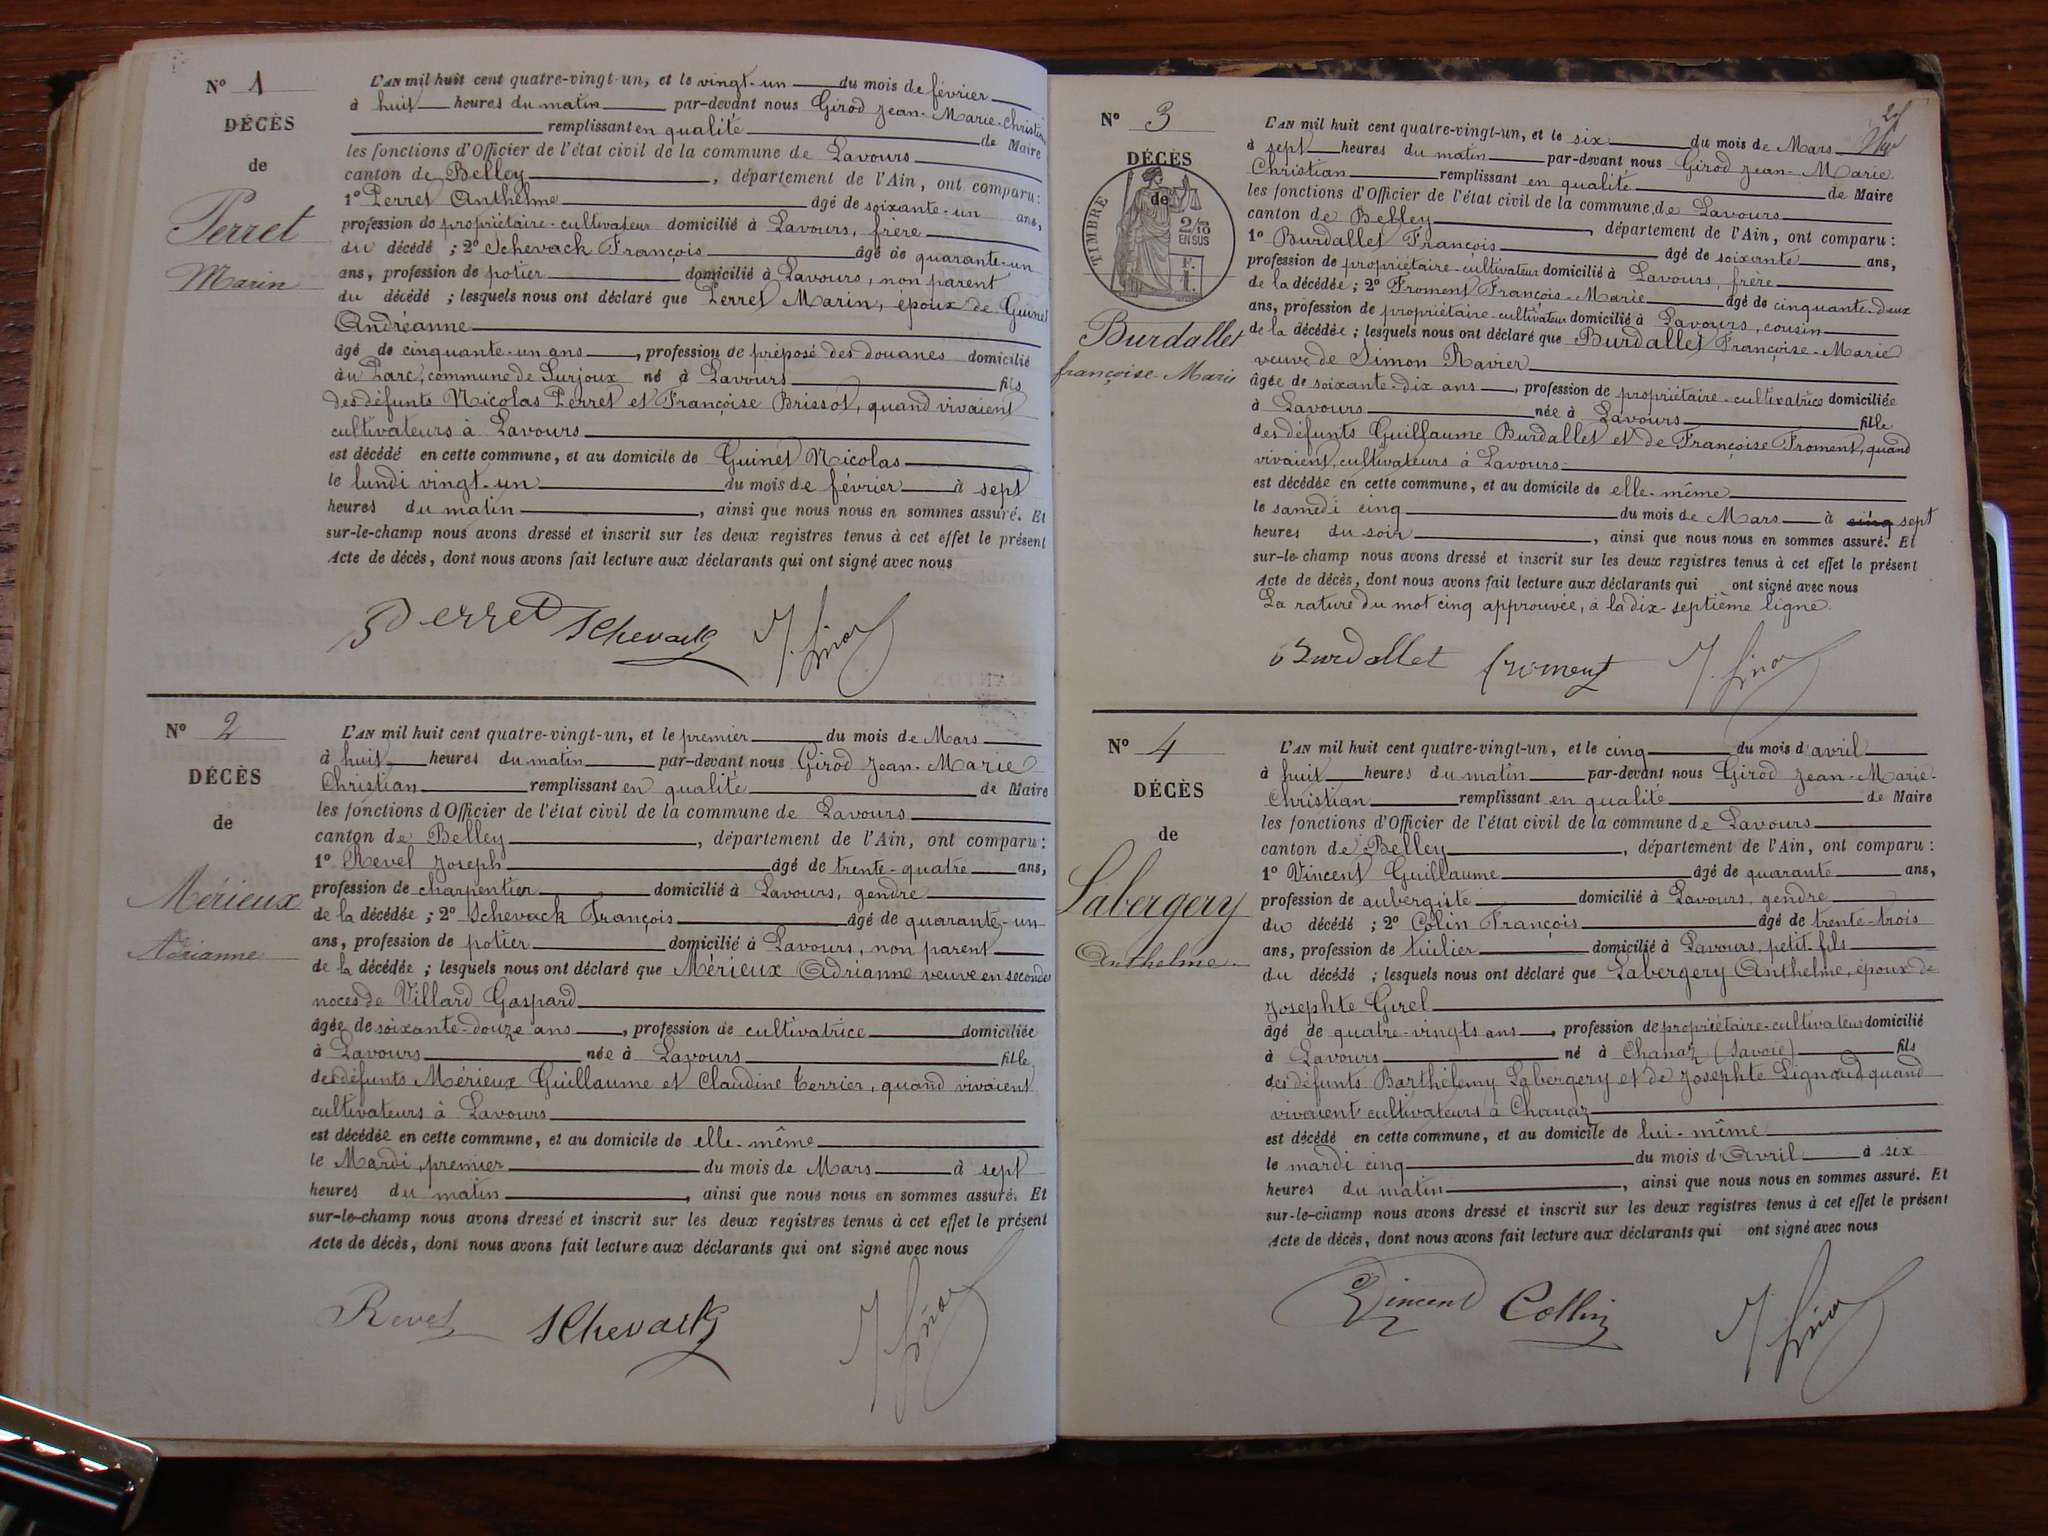 N° 1
DÉCÈS
de
Perret
Marin
L'AN mil huit cent quatre-vingt-un, et le vingt-un du mois de février
à huit heures du matin par-devant nous Girod Jean-Marie-Christian
remplissant en qualité de Maire
les fonctions d'Officier de l'état civil de la commune de Lavours
canton de Belley, département de l'Ain, ont comparu :
1° Perret Anthelme âgé de soixante-un ans,
profession de propriétaire-cultivateur domicilié à Lavours, frère
du décédé ; 2° Schevack François âgé de quarante-un
ans, profession de potier domicilié à Lavours, non parent
du décédé ; lesquels nous ont déclaré que Perret Marin, époux de Guinet
Andréanne
âgé de cinquante-un ans, profession de préposé des douanes domicilié
au Parc, commune de Surjoux né à Lavours fils
des défunts Nicolas Perret et Françoise Brissot, quand vivaient
cultivateurs à Lavours
est décédé en cette commune, et au domicile de Guinet Nicolas
le lundi vingt-un du mois de février à sept
heures du matin, ainsi que nous nous en sommes assuré. Et
sur-le-champ nous avons dressé et inscrit sur les deux registres tenus à cet effet le présent
Acte de décès, dont nous avons fait lecture aux déclarants qui ont signé avec nous
Perret Schevack
N° 2
DÉCÈS
de
Mérieux
Adrianne
L'AN mil huit cent quatre-vingt-un, et le premier du mois de Mars
à huit heures du matin par-devant nous Girod Jean-Marie
Christian remplissant en qualité de Maire
les fonctions d'Officier de l'état civil de la commune de Lavours
canton de Belley, département de l'Ain, ont comparu :
1° Revel Joseph âgé de trente-quatre ans,
profession de charpentier domicilié à Lavours, gendre
de la décédée ; 2° Schevack François âgé de quarante-un
ans, profession de potier domicilié à Lavours, non parent
de la décédée ; lesquels nous ont déclaré que Mérieux Adrianne veuve en secondes
noces de Villard Gaspard
âgée de soixante-douze ans, profession de cultivatrice domiciliée
à Lavours née à Lavours fille
des défunts Mérieux Guillaume et Claudine Terrier, quand vivaient
cultivateurs à Lavours
est décédée en cette commune, et au domicile de elle-même
le Mardi, premier du mois de Mars à sept
heures du matin, ainsi que nous nous en sommes assuré. Et
sur-le-champ nous avons dressé et inscrit sur les deux registres tenus à cet effet le présent
Acte de décès, dont nous avons fait lecture aux déclarants qui ont signé avec nous
Revel Schevack
N° 3
DÉCÈS
de
TIMBRE
2/10
EN SUS
Burdallet
françoise-Marie
L'AN mil huit cent quatre-vingt-un, et le six du mois de Mars
à sept heures du matin par-devant nous Girod Jean-Marie
Christian remplissant en qualité de Maire
les fonctions d'Officier de l'état civil de la commune de Lavours
canton de Belley, département de l'Ain, ont comparu :
1° Burdallet François âgé de soixante ans,
profession de propriétaire-cultivateur domicilié à Lavours, frère
de la décédée ; 2° Froment François-Marie âgé de cinquante-deux
ans, profession de propriétaire-cultivateur domicilié à Lavours, cousin
de la décédée ; lesquels nous ont déclaré que Burdallet Françoise-Marie
veuve de Simon Ravier
âgée de soixante-dix ans, profession de propriétaire-cultivatrice domiciliée
à Lavours née à Lavours fille
des défunts Guillaume Burdallet et de Françoise Froment, quand
vivaient, cultivateurs à Lavours
est décédée en cette commune, et au domicile de elle-même
le samedi cinq du mois de Mars à cinq sept
heures du soir, ainsi que nous nous en sommes assuré. Et
sur-le-champ nous avons dressé et inscrit sur les deux registres tenus à cet effet le présent
Acte de décès, dont nous avons fait lecture aux déclarants qui ont signé avec nous
La rature du mot cinq approuvée, à la dix-septième ligne.
Burdallet froment
N° 4
DÉCÈS
de
Labergery
Anthelme
L'AN mil huit cent quatre-vingt-un, et le cinq du mois d'avril
à huit heures du matin par-devant nous Girod Jean-Marie-
Christian remplissant en qualité de Maire
les fonctions d'Officier de l'état civil de la commune de Lavours
canton de Belley, département de l'Ain, ont comparu :
1° Vincent Guillaume âgé de quarante ans,
profession de aubergiste domicilié à Lavours, gendre
du décédé ; 2° Colin François âgé de trente-trois
ans, profession de tuilier domicilié à Lavours, petit-fils
du décédé ; lesquels nous ont déclaré que Labergery Anthelme, époux de
Josephte Girel
âgé de quatre-vingts ans, profession de propriétaire-cultivateur domicilié
à Lavours né à Chanaz (Savoie) fils
des défunts Barthélemy Labergery et de Josephte Lignoud, quand
vivaient cultivateurs à Chanaz
est décédé en cette commune, et au domicile de lui-même
le mardi cinq du mois d'Avril à six
heures du matin, ainsi que nous nous en sommes assuré. Et
sur-le-champ nous avons dressé et inscrit sur les deux registres tenus à cet effet le présent
Acte de décès, dont nous avons fait lecture aux déclarants qui ont signé avec nous
Vincent Collin